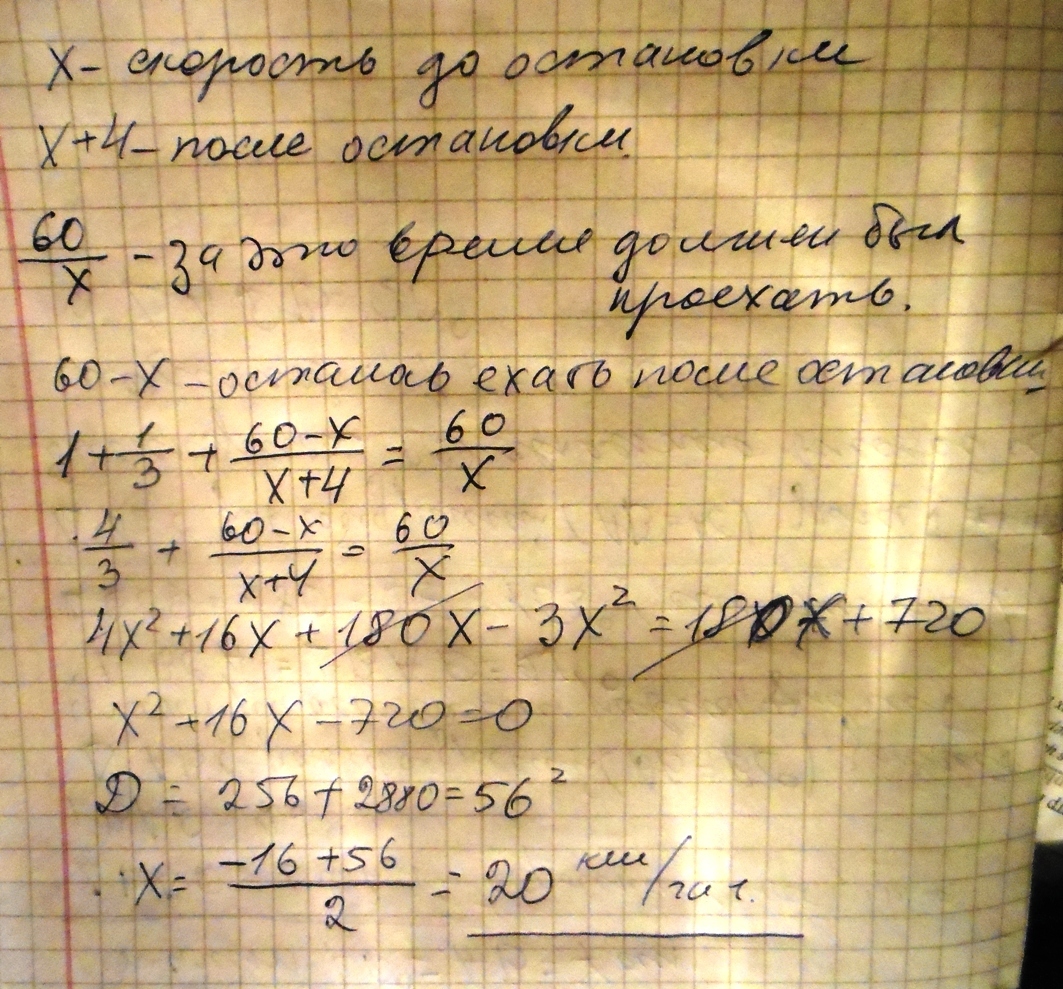 x - скорость до остановки
x+4 - после остановки.
60/x - за это время должен был
проехать.
60-x - осталось ехать после остановки
1 + 1/3 + (60-x)/(x+4) = 60/x
4/3 + (60-x)/(x+4) = 60/x
4x² + 16x + 180x - 3x² = 180x + 720
x² + 16x - 720 = 0
D = 256 + 2880 = 56²
x = (-16 + 56)/2 = 20 км/час.